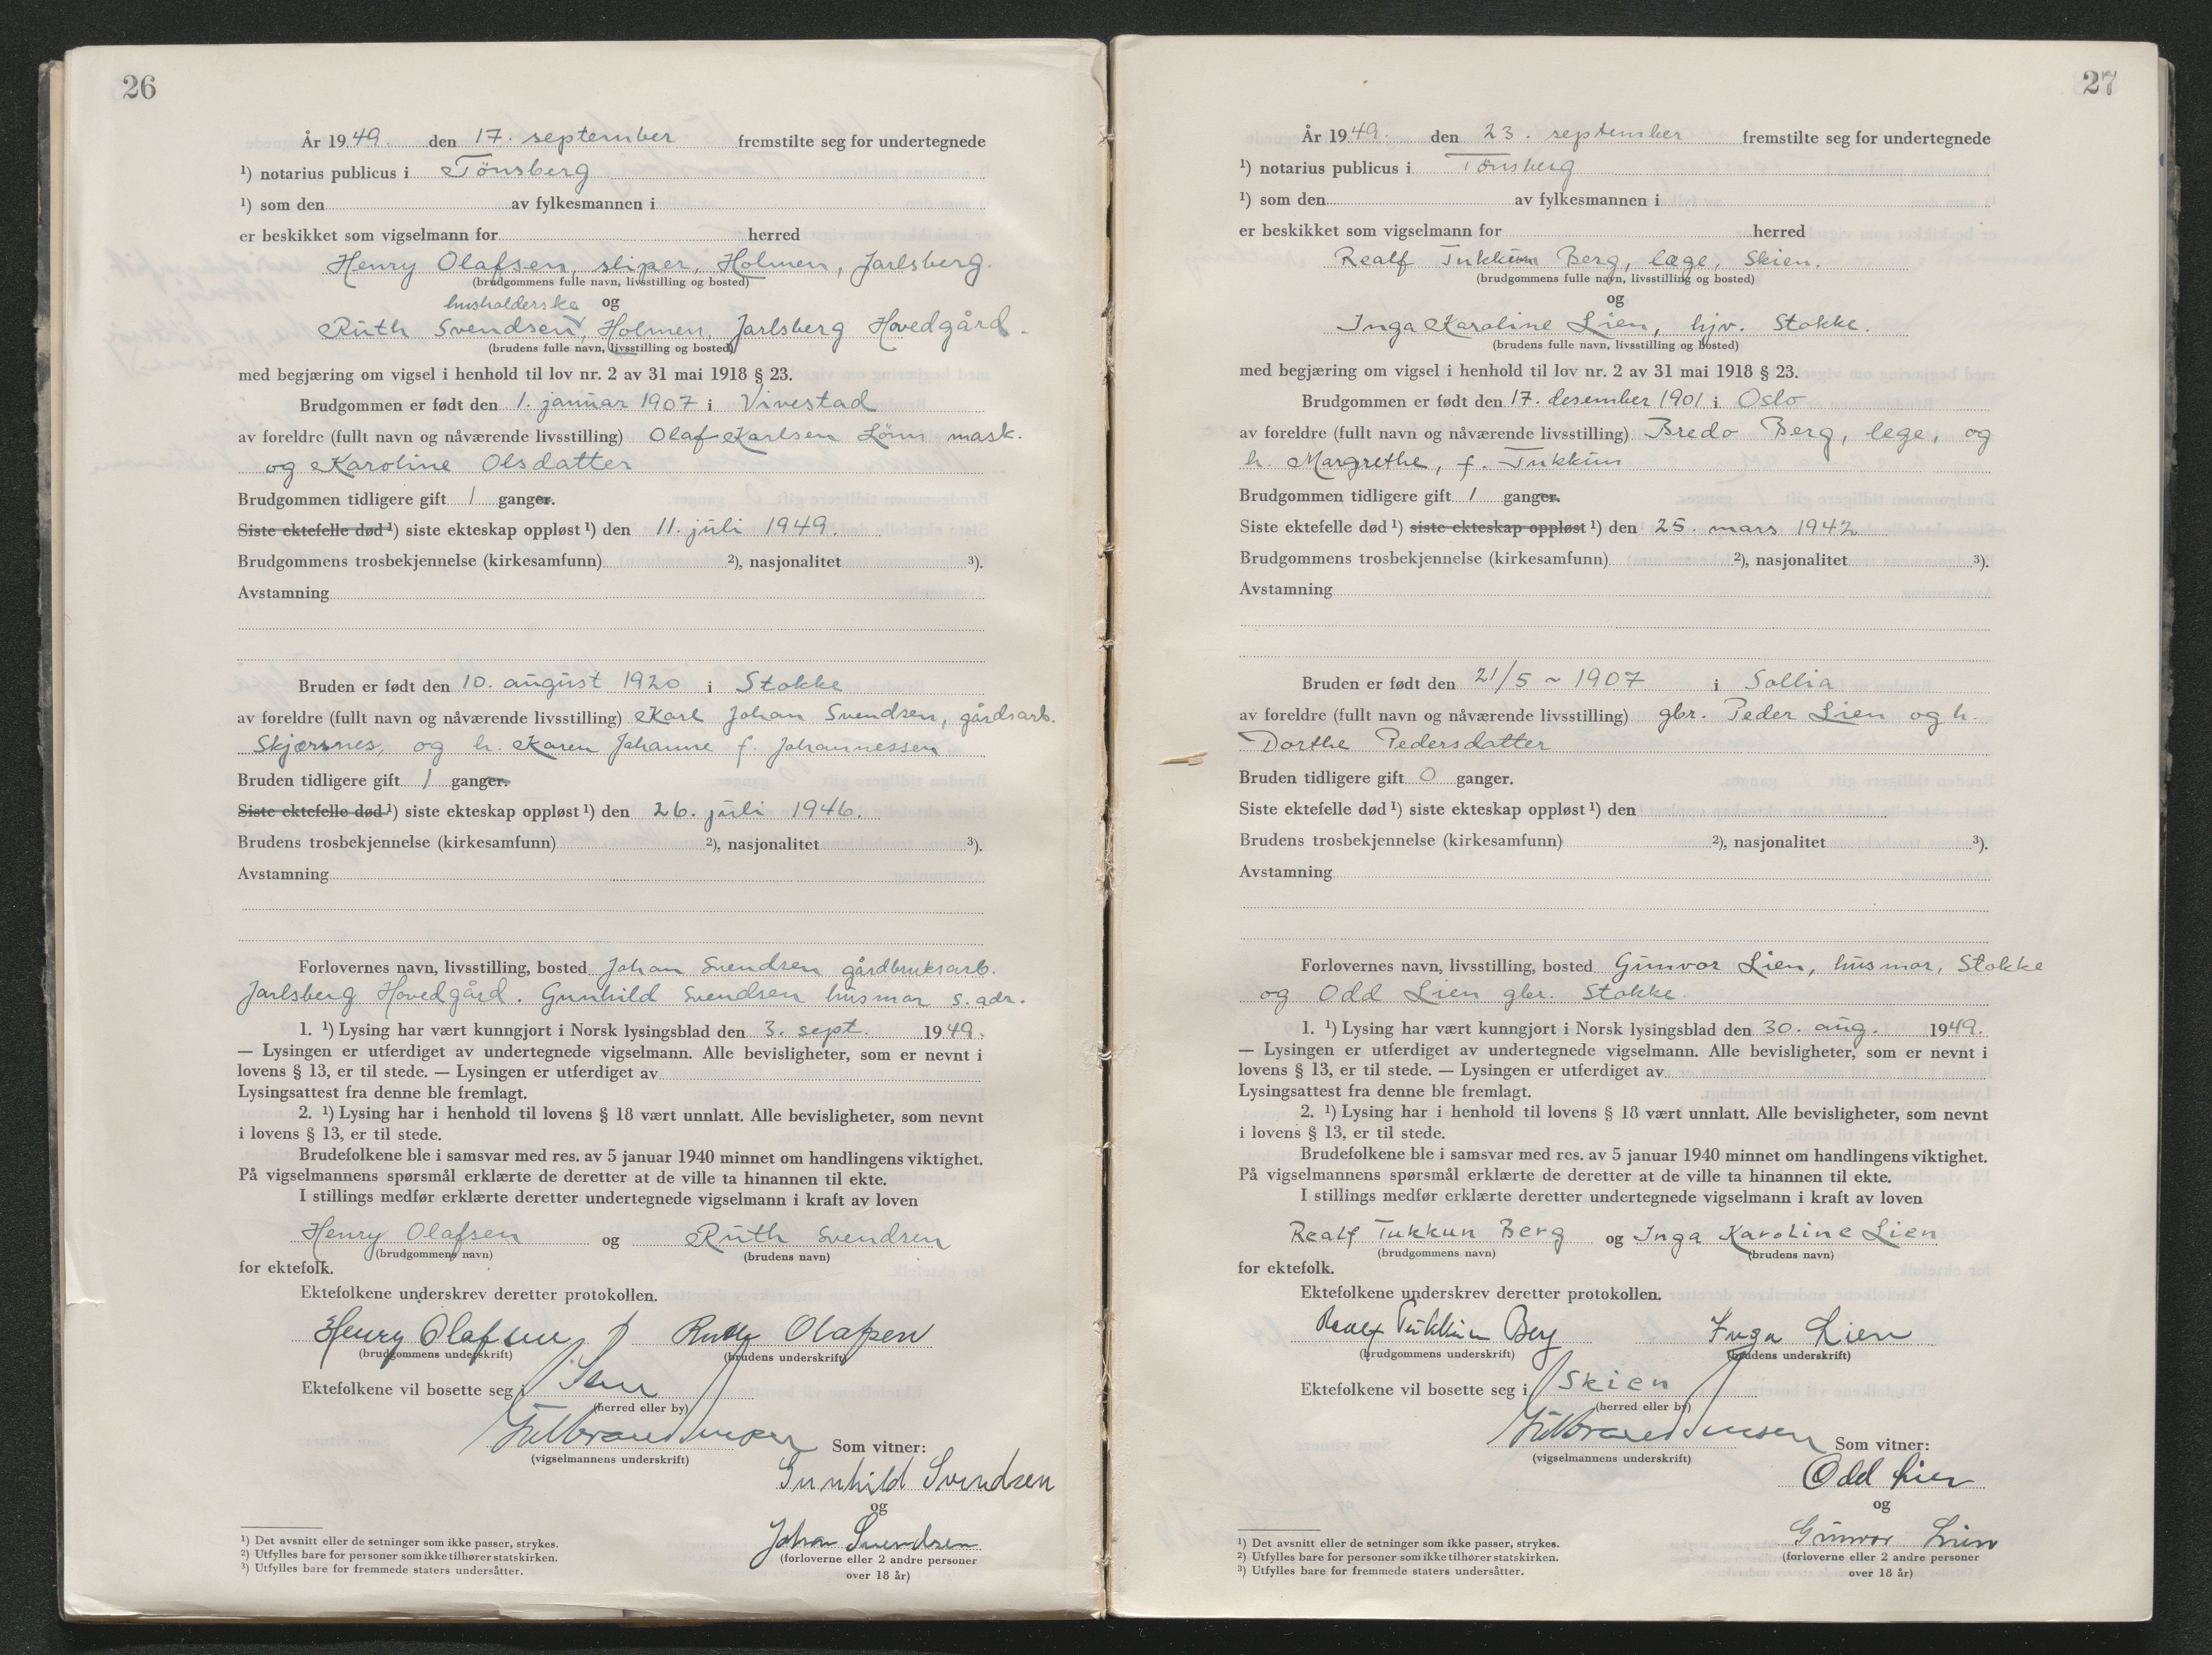 26
År 1949. den 17. september fremstilte seg for undertegnede
¹) notarius publicus i Tönsberg
¹) som den av fylkesmannen i
er beskikket som vigselmann for herred
Henry Olafsen, sliper, Holmen, Jarlsberg.
(brudgommens fulle navn, livsstilling og bosted)
husholderske og
Ruth Svendsen, Holmen, Jarlsberg Hovedgård.
(brudens fulle navn, livsstilling og bosted)
med begjæring om vigsel i henhold til lov nr. 2 av 31 mai 1918 § 23.
Brudgommen er født den 1. januar 1907 i Vivestad
av foreldre (fullt navn og nåværende livsstilling) Olaf Karlsen mask.
og Karoline Olsdatter
Brudgommen tidligere gift 1 ganger.
Siste ektefelle død ¹) siste ekteskap oppløst ¹) den 11. juli 1949.
Brudgommens trosbekjennelse (kirkesamfunn) ²), nasjonalitet ³).
Avstamning
Bruden er født den 10. august 1920 i Stokke
av foreldre (fullt navn og nåværende livsstilling) Karl Johan Svendsen, gårdsarb.
Skjærsnes, og h. Karen Johanne f. Johannessen
Bruden tidligere gift 1 ganger.
Siste ektefelle død ¹) siste ekteskap oppløst ¹) den 26. juli 1946.
Brudens trosbekjennelse (kirkesamfunn) ²), nasjonalitet ³).
Avstamning
Forlovernes navn, livsstilling, bosted Johan Svendsen gårdbruksarb.
Jarlsberg Hovedgård. Gunhild Svendsen husmor s. adr.
1. ¹) Lysing har vært kunngjort i Norsk lysingsblad den 3. sept. 1949.
— Lysingen er utferdiget av undertegnede vigselmann. Alle bevisligheter, som er nevnt i
lovens § 13, er til stede. — Lysingen er utferdiget av
Lysingsattest fra denne ble fremlagt.
2. ¹) Lysing har i henhold til lovens § 18 vært unnlatt. Alle bevisligheter, som nevnt
i lovens § 13, er til stede.
Brudefolkene ble i samsvar med res. av 5 januar 1940 minnet om handlingens viktighet.
På vigselmannens spørsmål erklærte de deretter at de ville ta hinannen til ekte.
I stillings medfør erklærte deretter undertegnede vigselmann i kraft av loven
Henry Olafsen og Ruth Svendsen
(brudgommens navn) (brudens navn)
for ektefolk.
Ektefolkene underskrev deretter protokollen.
Henry Olafsen Ruth Olafsen
(brudgommens underskrift) (brudens underskrift)
Ektefolkene vil bosette seg i Sem
(herred eller by)
(vigselmannens underskrift)
Som vitner:
Gunhild Svendsen
og
Johan Svendsen
(forloverne eller 2 andre personer
over 18 år)
¹) Det avsnitt eller de setninger som ikke passer, strykes.
²) Utfylles bare for personer som ikke tilhører statskirken.
³) Utfylles bare for fremmede staters undersåtter.
27
År 1949. den 23. september fremstilte seg for undertegnede
¹) notarius publicus i Tönsberg
¹) som den av fylkesmannen i
er beskikket som vigselmann for herred
Realf Tukkun Berg, læge, Skien.
(brudgommens fulle navn, livsstilling og bosted)
og
Inga Karoline Lien, hjv. Stokke.
(brudens fulle navn, livsstilling og bosted)
med begjæring om vigsel i henhold til lov nr. 2 av 31 mai 1918 § 23.
Brudgommen er født den 17. desember 1901 i Oslo
av foreldre (fullt navn og nåværende livsstilling) Bredo Berg, lege, og
h. Margrethe, f. Tukkun
Brudgommen tidligere gift 1 ganger.
Siste ektefelle død ¹) siste ekteskap oppløst ¹) den 25. mars 1942
Brudgommens trosbekjennelse (kirkesamfunn) ²), nasjonalitet ³).
Avstamning
Bruden er født den 21/5 ~ 1907 i Sollia
av foreldre (fullt navn og nåværende livsstilling) gbr. Peder Lien og h.
Dorthe Pedersdatter
Bruden tidligere gift 0 ganger.
Siste ektefelle død ¹) siste ekteskap oppløst ¹) den
Brudens trosbekjennelse (kirkesamfunn) ²), nasjonalitet ³).
Avstamning
Forlovernes navn, livsstilling, bosted Gunvor Lien, husmor, Stokke
og Odd Lien gbr. Stokke
1. ¹) Lysing har vært kunngjort i Norsk lysingsblad den 30. aug. 1949.
— Lysingen er utferdiget av undertegnede vigselmann. Alle bevisligheter, som er nevnt i
lovens § 13, er til stede. — Lysingen er utferdiget av
Lysingsattest fra denne ble fremlagt.
2. ¹) Lysing har i henhold til lovens § 18 vært unnlatt. Alle bevisligheter, som nevnt
i lovens § 13, er til stede.
Brudefolkene ble i samsvar med res. av 5 januar 1940 minnet om handlingens viktighet.
På vigselmannens spørsmål erklærte de deretter at de ville ta hinannen til ekte.
I stillings medfør erklærte deretter undertegnede vigselmann i kraft av loven
Realf Tukkun Berg og Inga Karoline Lien
(brudgommens navn) (brudens navn)
for ektefolk.
Ektefolkene underskrev deretter protokollen.
Realf Tukkun Berg Inga Lien
(brudgommens underskrift) (brudens underskrift)
Ektefolkene vil bosette seg i Skien
(herred eller by)
(vigselmannens underskrift)
Som vitner:
Odd Lien
og
Gunvor Lien
(forloverne eller 2 andre personer
over 18 år)
¹) Det avsnitt eller de setninger som ikke passer, strykes.
²) Utfylles bare for personer som ikke tilhører statskirken.
³) Utfylles bare for fremmede staters undersåtter.